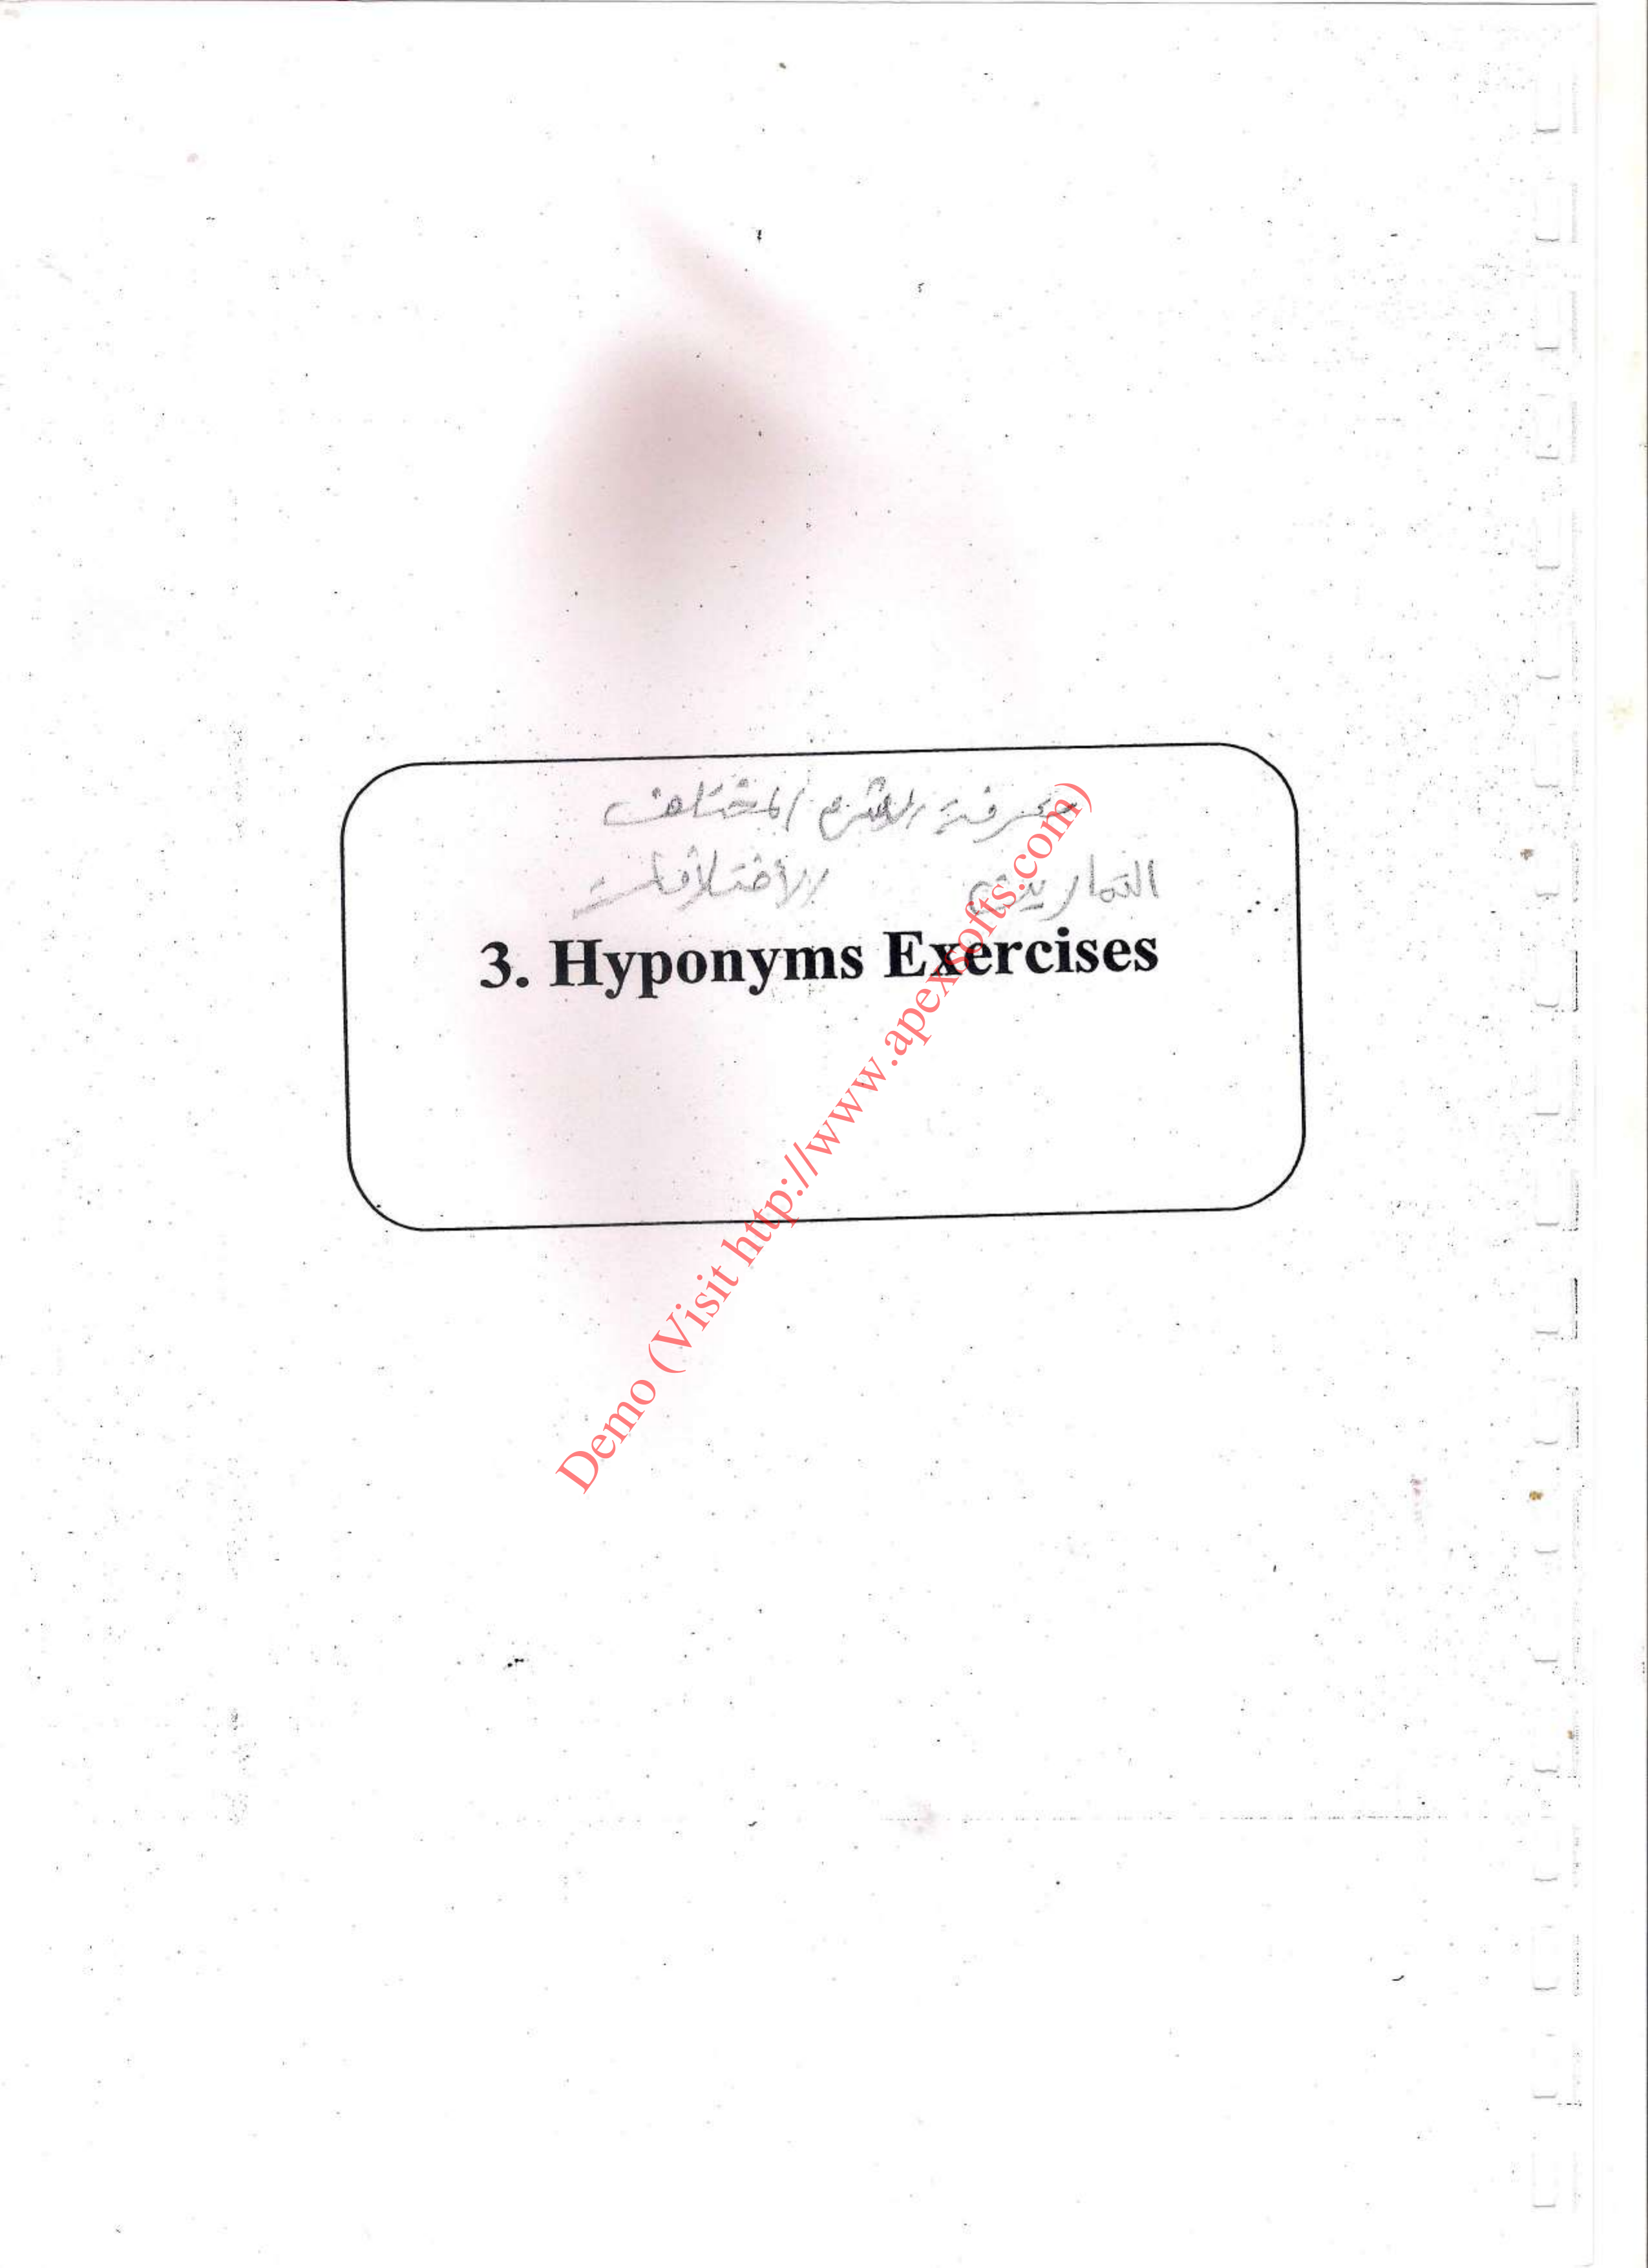 معرفة المختلف
التمارين الأختلافات
3. Hyponyms Exercises
Demo (Visit http://www.apexsofts.com)